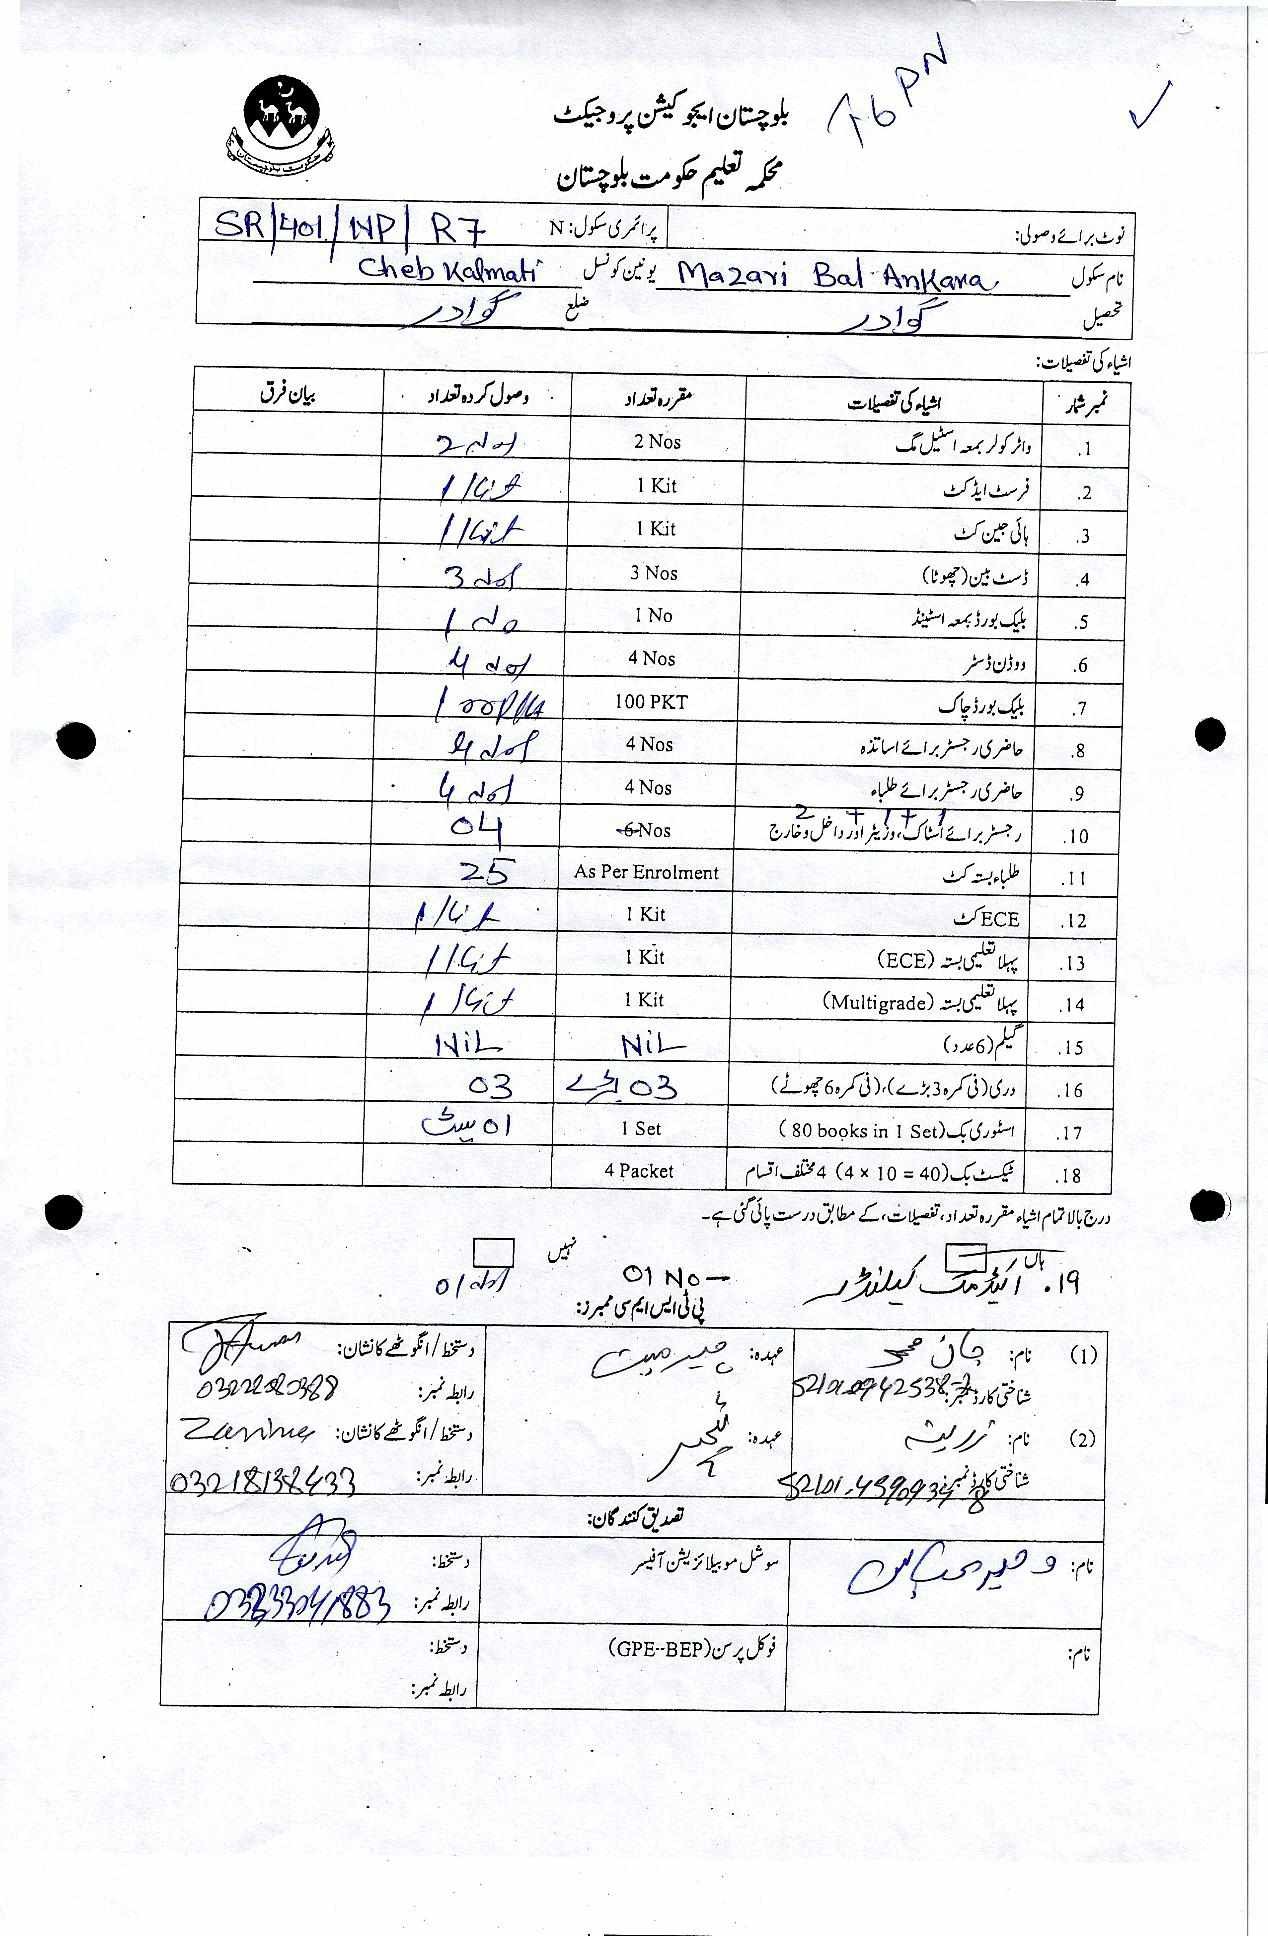 بلوچستان ایجوکیشن پروجیکٹ
محکمہ تعلیم حکومت بلوچستان
نوٹ برائے وصولی: پرائمری سکول: N SR/401/NP/R7
نام سکول Mazari Bal Ankara یونین کونسل Cheb Kalmati
تحصیل گوادر ضلع گوادر
اشیاء کی تفصیلات:
نمبر شمار اشیاء کی تفصیلات مقررہ تعداد وصول کردہ تعداد بیان فرق
1. واٹر کولر بمعہ اسٹیل مگ 2 Nos 2 Nos
2. فرسٹ ایڈ کٹ 1 Kit 1 Kit
3. ہائی جین کٹ 1 Kit 1 Kit
4. ڈسٹ بین (چھوٹا) 3 Nos 3 Nos
5. بلیک بورڈ بمعہ اسٹینڈ 1 No 1 No
6. ووڈن ڈسٹر 4 Nos 4 Nos
7. بلیک بورڈ چاک 100 PKT 100
8. حاضری رجسٹر برائے اساتذہ 4 Nos 4 Nos
9. حاضری رجسٹر برائے طلباء 4 Nos 4 Nos
2 + 1 + 1
10. رجسٹر برائے اسٹاک، وزیٹر اور داخل و خارج 6 Nos 04
11. طلباء بستہ کٹ As Per Enrolment 25
12. ECE کٹ 1 Kit 1 Kit
13. پہلا تعلیمی بستہ (ECE) 1 Kit 1 Kit
14. پہلا تعلیمی بستہ (Multigrade) 1 Kit 1 Kit
15. گیلم (6 عدد) NiL NiL
16. دری (فی کمرہ 3 بڑے)، (فی کمرہ 6 چھوٹے) 03 بڑے 03
17. اسٹوری بک (80 books in 1 Set) 1 Set 01 سیٹ
18. ٹیکسٹ بک (4 × 10 = 40) 4 مختلف اقسام 4 Packet
درج بالا تمام اشیاء مقررہ تعداد، تفصیلات، کے مطابق درست پائی گئی ہے۔
ہاں نہیں
19. کیلنڈر 01 No — 01 No
پی ٹی ایس ایم سی ممبرز:
(1) نام: جان محمد عہدہ: چیرمین دستخط/انگوٹھے کا نشان:
شناختی کارڈ نمبر: رابطہ نمبر:
(2) نام: زرینہ عہدہ: ٹیچر دستخط/انگوٹھے کا نشان: Zarina
شناختی کارڈ نمبر: رابطہ نمبر: 03218138433
تصدیق کنندگان:
نام: سوشل موبیلائزیشن آفیسر دستخط:
رابطہ نمبر:
نام: فوکل پرسن (GPE--BEP) دستخط:
رابطہ نمبر: